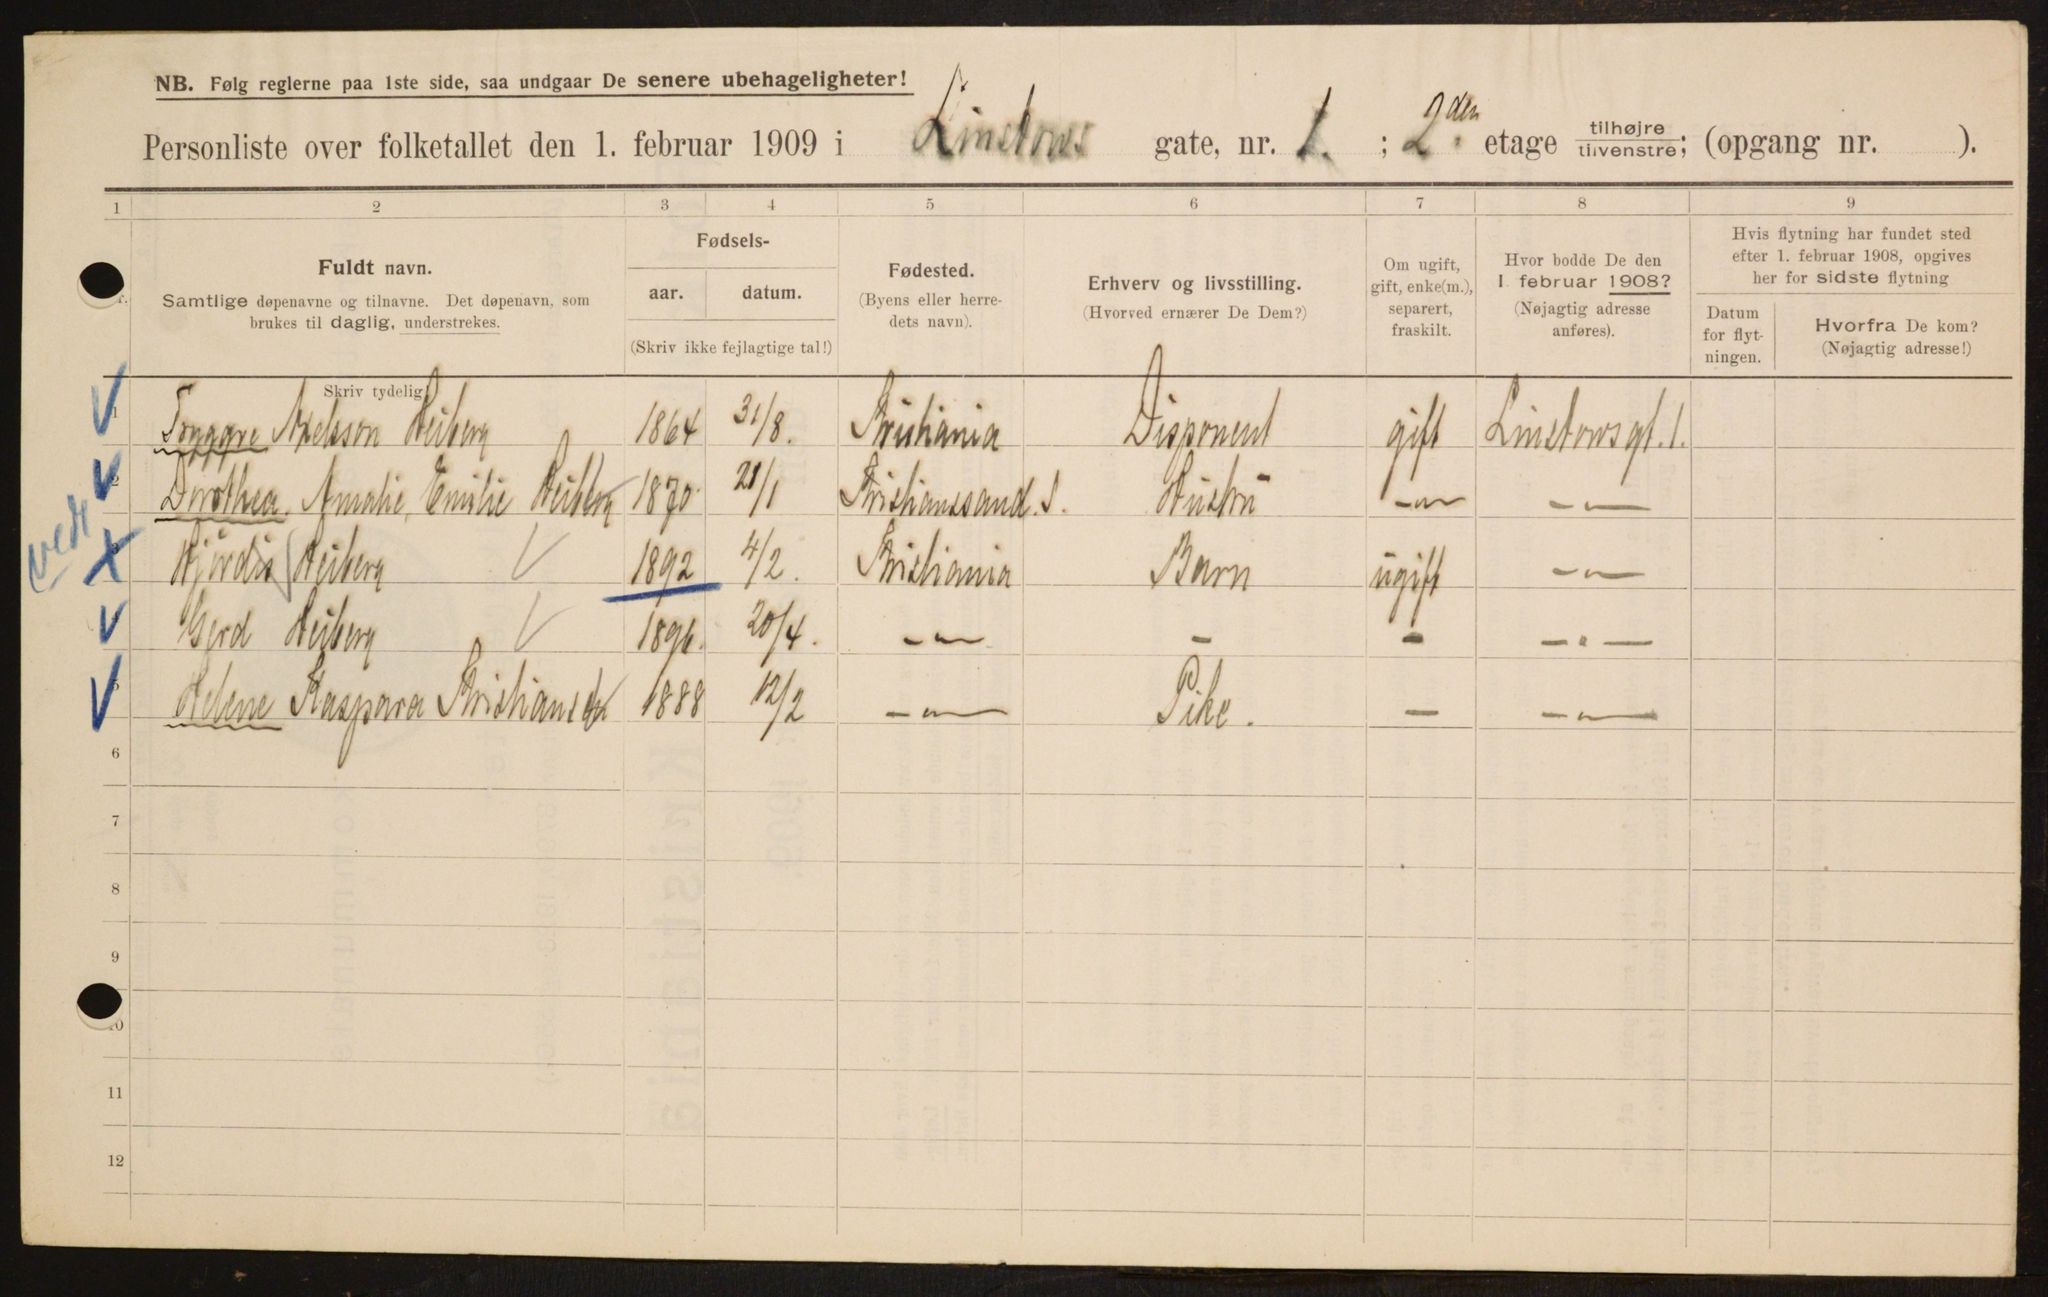 NB. Følg reglerne paa 1ste side, saa undgaar De senere ubehageligheter!
Personliste over folketallet den 1. februar 1909 i Linstows gate, nr. 1. ; 2den etage tilhøjre tilvenstre; (opgang nr. ).
1 2 3 4 5 6 7 8 9
Fuldt navn.
Samtlige døpenavne og tilnavne. Det døpenavn, som
brukes til daglig, understrekes.
Fødsels-
aar. datum.
(Skriv ikke fejlagtige tal!)
Fødested.
(Byens eller herre-
dets navn).
Erhverv og livsstilling.
(Hvorved ernærer De Dem?)
Om ugift,
gift, enke(m.),
separert,
fraskilt.
Hvor bodde De den
1. februar 1908?
(Nøjagtig adresse
anføres).
Hvis flytning har fundet sted
efter 1. februar 1908, opgives
her for sidste flytning
Datum
for flyt-
ningen.
Hvorfra De kom?
(Nøjagtig adresse!)
Skriv tydelig
1 Tryggve Axelsson Heiberg 1864 31/8. Kristiania Disponent gift Linstowsgt. 1.
2 Dorothea Amalie Emilie Heiberg 1870 21/1 Kristianssand. S. Hustru -"- -"-
Hjördis Heiberg 1892 4/2. Kristiania Barn ugift -"-
Gerd Heiberg 1896. 20/4. -"- - - -"-
5 Helene Kaspara Kristiansen 1888 12/2 -"- Pike. - -"-
6
7
8
9
10
11
12